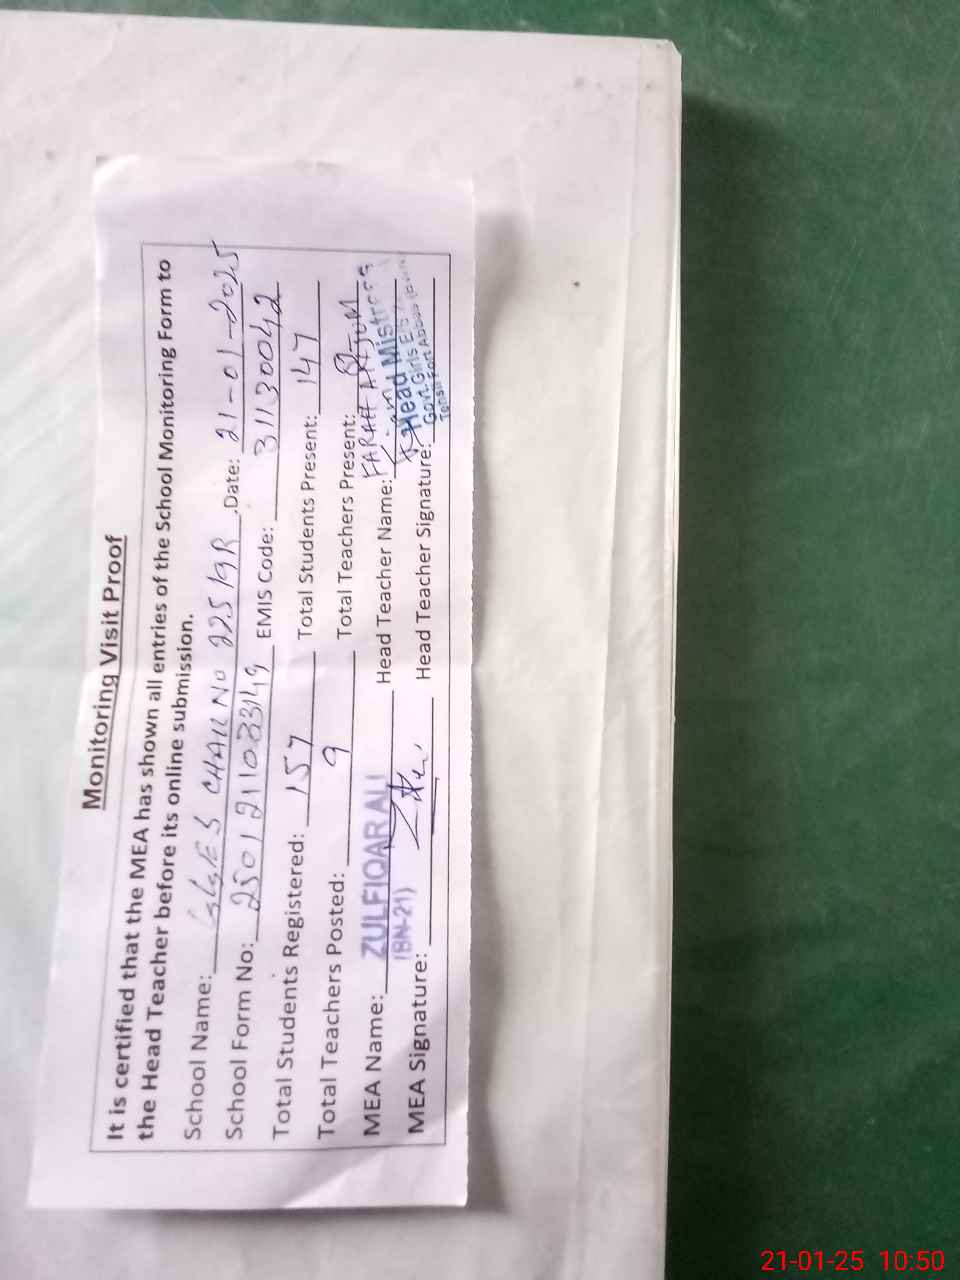 Monitoring Visit Proof
It is certified that the MEA has shown all entries of the School Monitoring Form to
the Head Teacher before its online submission.
School Name: GGES CHAK NO 225/9R ,Date: 21-01-2025
School Form No: 2501211083149 EMIS Code: 31130042
Total Students Registered: 157 Total Students Present: 147
Total Teachers Posted: 9 Total Teachers Present:
MEA Name: ZULFIQAR ALI Head Teacher Name: FARAH ANJUM
(BN-21)
MEA Signature: Head Teacher Signature:
Head Mistress
Govt. Girls
Tehsil Fort Abbas
21-01-25 10:50